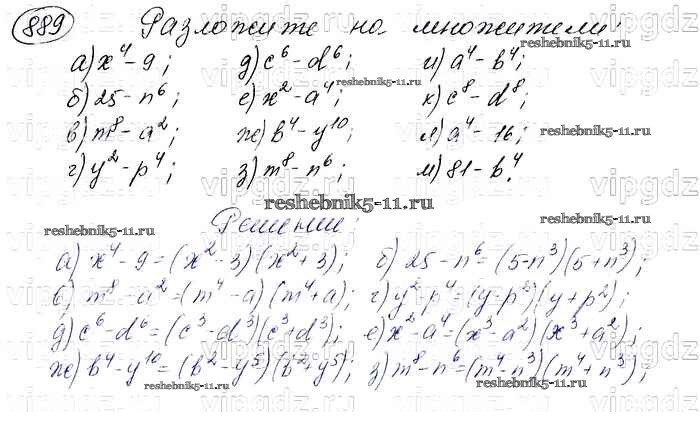 889 Разложите на множители:
а) x⁴ - 9; д) c⁶ - d⁶; и) a⁴ - b⁴;
б) 25 - n⁶; е) x² - a⁴; к) c⁸ - d⁸;
в) m⁸ - a²; ж) b⁴ - y¹⁰; л) a⁴ - 16;
г) y² - p⁴; з) m⁸ - n⁶; м) 81 - b⁴.
reshebnik5-11.ru
Решение:
а) x⁴ - 9 = (x² - 3)(x² + 3); б) 25 - n⁶ = (5 - n³)(5 + n³);
в) m⁸ - a² = (m⁴ - a)(m⁴ + a); г) y² - p⁴ = (y - p²)(y + p²);
д) c⁶ - d⁶ = (c³ - d³)(c³ + d³); е) x² - a⁴ = (x³ - a²)(x³ + a²);
ж) b⁴ - y¹⁰ = (b² - y⁵)(b² + y⁵); з) m⁸ - n⁶ = (m⁴ - n³)(m⁴ + n³);
reshebnik5-11.ru
vipgdz